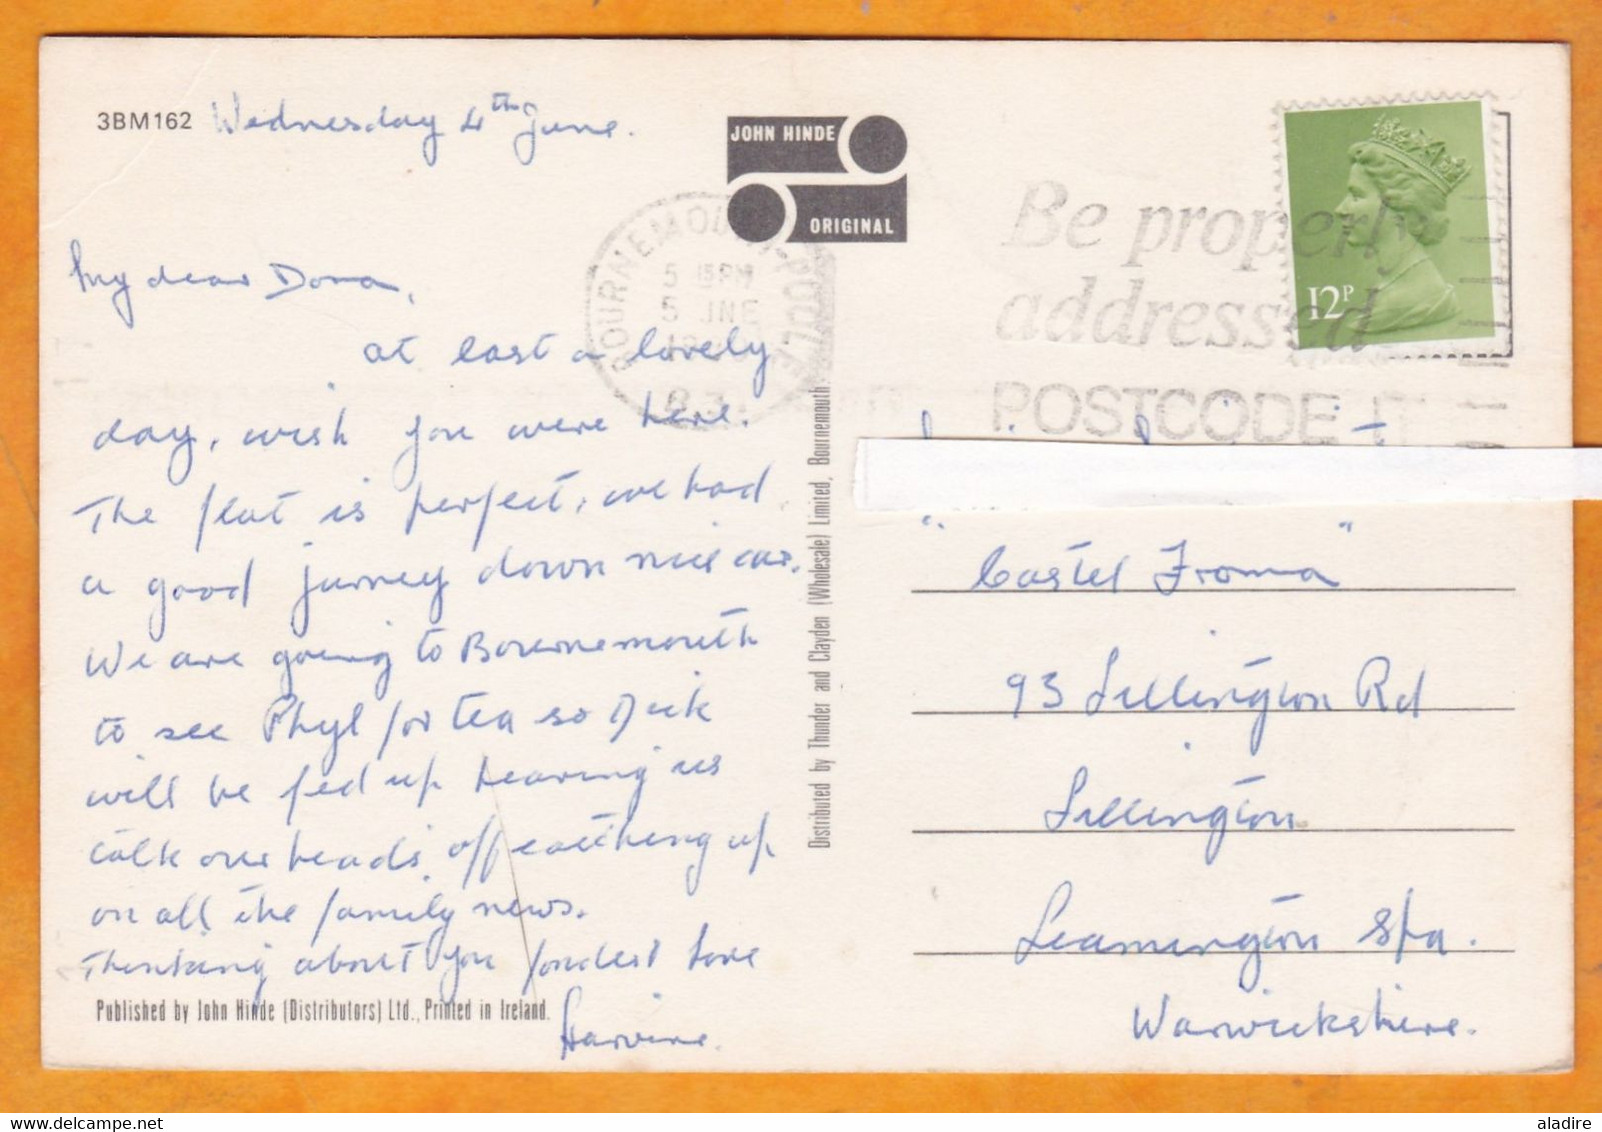 3BM162 Wednesday 4th June.
JOHN HINDE
ORIGINAL
BOURNEMOUTH-POOLE
5 15PM
5 JNE
Be properly
addressed
POSTCODE IT
12P
My dear Dora,
at last a lovely
day, wish you were here.
The flat is perfect, we had
a good jurney down nice car.
We are going to Bournemouth
to see Phyl for tea so Dick
will be fed up hearing us
talk our heads off catching up
on all the family news.
Thinking about you fondest love
Published by John Hinde (Distributors) Ltd., Printed in Ireland.
Distributed by Thunder and Clayden (Wholesale) Limited, Bournemouth.
"Castel Froma"
93 Lillington Rd
Lillington
Leamington Spa.
Warwickshire.
aladire